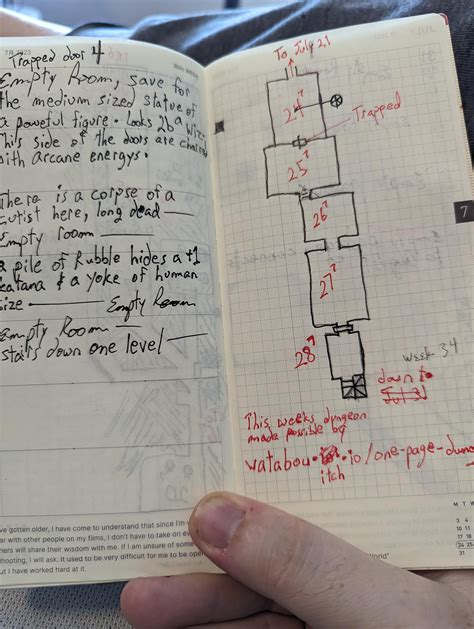 Trapped door 4
Empty Room, save for
the medium sized statue of
a powerful figure. Looks 2b a Wiz.
This side of the doors are
with arcane energys.
There is a corpse of a
here, long dead
Empty room
a pile of Rubble hides a +1
Katana & a Yoke of human
size
Empty Room
Empty Room
stairs down one level
To July 21
24
Trapped
25
26
27
28
7
week 34
down to
This weeks dungeon
made possible by
watabou. .io/one-page-
itch
've gotten older, I have come to understand that since I'm
with other people on my films, I don't have to take on
will share their wisdom with me. If I am unsure of
I will ask. It used to be very difficult for me to be
but I have worked hard at it.
World"
M T
3 4
10 11
17 18
24 25
31